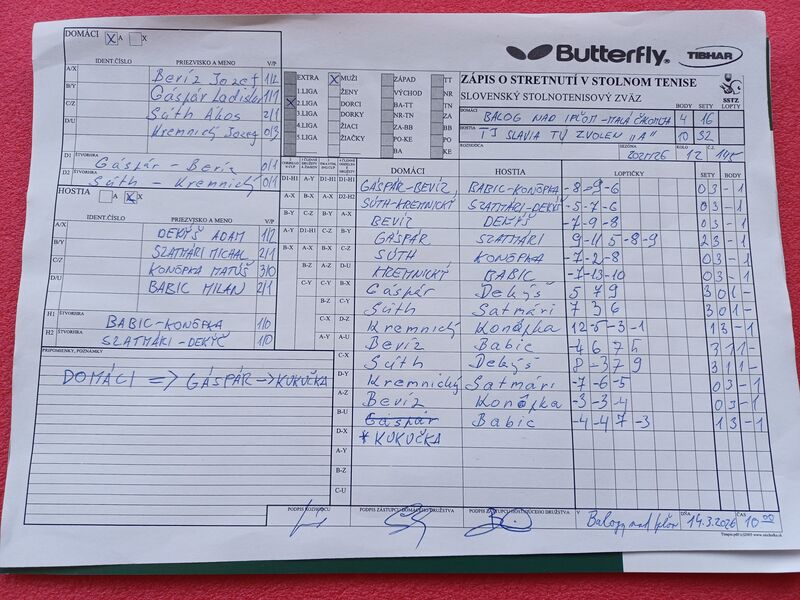 DOMÁCI X A X
IDENT.ČÍSLO PRIEZVISKO A MENO V/P
A/X Bevíz Jozef 1/2
B/Y Gáspár Ladislav 1/1
C/Z Súth Ákos 2/1
D/U Kremnický Jozef 0/3
D1 ŠTVORHRA Gáspár - Bevíz 0/1
D2 ŠTVORHRA Súth - Kremnický 0/1
HOSTIA A X X
IDENT.ČÍSLO PRIEZVISKO A MENO V/P
A/X DEKÝŠ ADAM 1/2
B/Y SZATMÁRI MICHAL 2/1
C/Z KONÔPKA MATÚŠ 3/0
D/U BABIC MILAN 2/1
H1 ŠTVORHRA BABIC-KONÔPKA 1/0
H2 ŠTVORHRA SZATMÁRI-DEKÝŠ 1/0
PRIPOMIENKY, POZNÁMKY
DOMÁCI => GÁSPÁR -> KUKUČKA
Butterfly TIBHAR
EXTRA X MUŽI ZÁPAD TT
1.LIGA ŽENY VÝCHOD NR
X 2.LIGA DORCI BA-TT TN
3.LIGA DORKY NR-TN ZA
4.LIGA ŽIACI ZA-BB BB
5.LIGA ŽIAČKY PO-KE PO
BA KE
ZÁPIS O STRETNUTÍ V STOLNOM TENISE
SLOVENSKÝ STOLNOTENISOVÝ ZVÄZ SSTZ
BODY SETY LOPTY
DOMÁCI BALOG NAD IPĽOM-MALÁ ČALOMIJA 4 16
HOSTIA TJ SLAVIA TU ZVOLEN "A" 10 32
SEZÓNA 2025/26 KOLO 12 Č.
DOMÁCI HOSTIA LOPTIČKY SETY BODY
D1-H1 GÁSPÁR-BEVÍZ BABIC-KONÔPKA -8 -9 -6 0 3 - 1
D2-H2 SÚTH-KREMNICKÝ SZATMÁRI-DEKÝŠ -5 -7 -6 0 3 - 1
BEVÍZ DEKÝŠ -7 -9 -8 0 3 - 1
GÁSPÁR SZATMÁRI 9 -11 5 -8 -9 2 3 - 1
SÚTH KONÔPKA -7 -2 -8 0 3 - 1
D-U KREMNICKÝ BABIC -7 -13 -10 0 3 - 1
Gáspár Dekýš 5 7 9 3 0 1 -
Súth Satmári 7 3 6 3 0 1 -
Kremnický Konôpka 12 -5 -3 -1 1 3 - 1
Bevíz Babic -4 6 7 5 3 1 1 -
C-X Súth Dekýš 8 -3 7 9 3 1 1 -
D-Y Kremnický Satmári -7 -6 -5 0 3 - 1
A-Z Bevíz Konôpka -3 -3 -4 0 3 - 1
B-U Gáspár Babic -4 -4 7 -3 1 3 - 1
D-X * KUKUČKA
A-Y
B-Z
C-U
PODPIS ROZHODCU PODPIS ZÁSTUPCU DOMÁCEHO DRUŽSTVA PODPIS ZÁSTUPCU HOSŤUJÚCEHO DRUŽSTVA V Balogu nad Ipľom DŇA 14.3.2026 ČAS 10 00